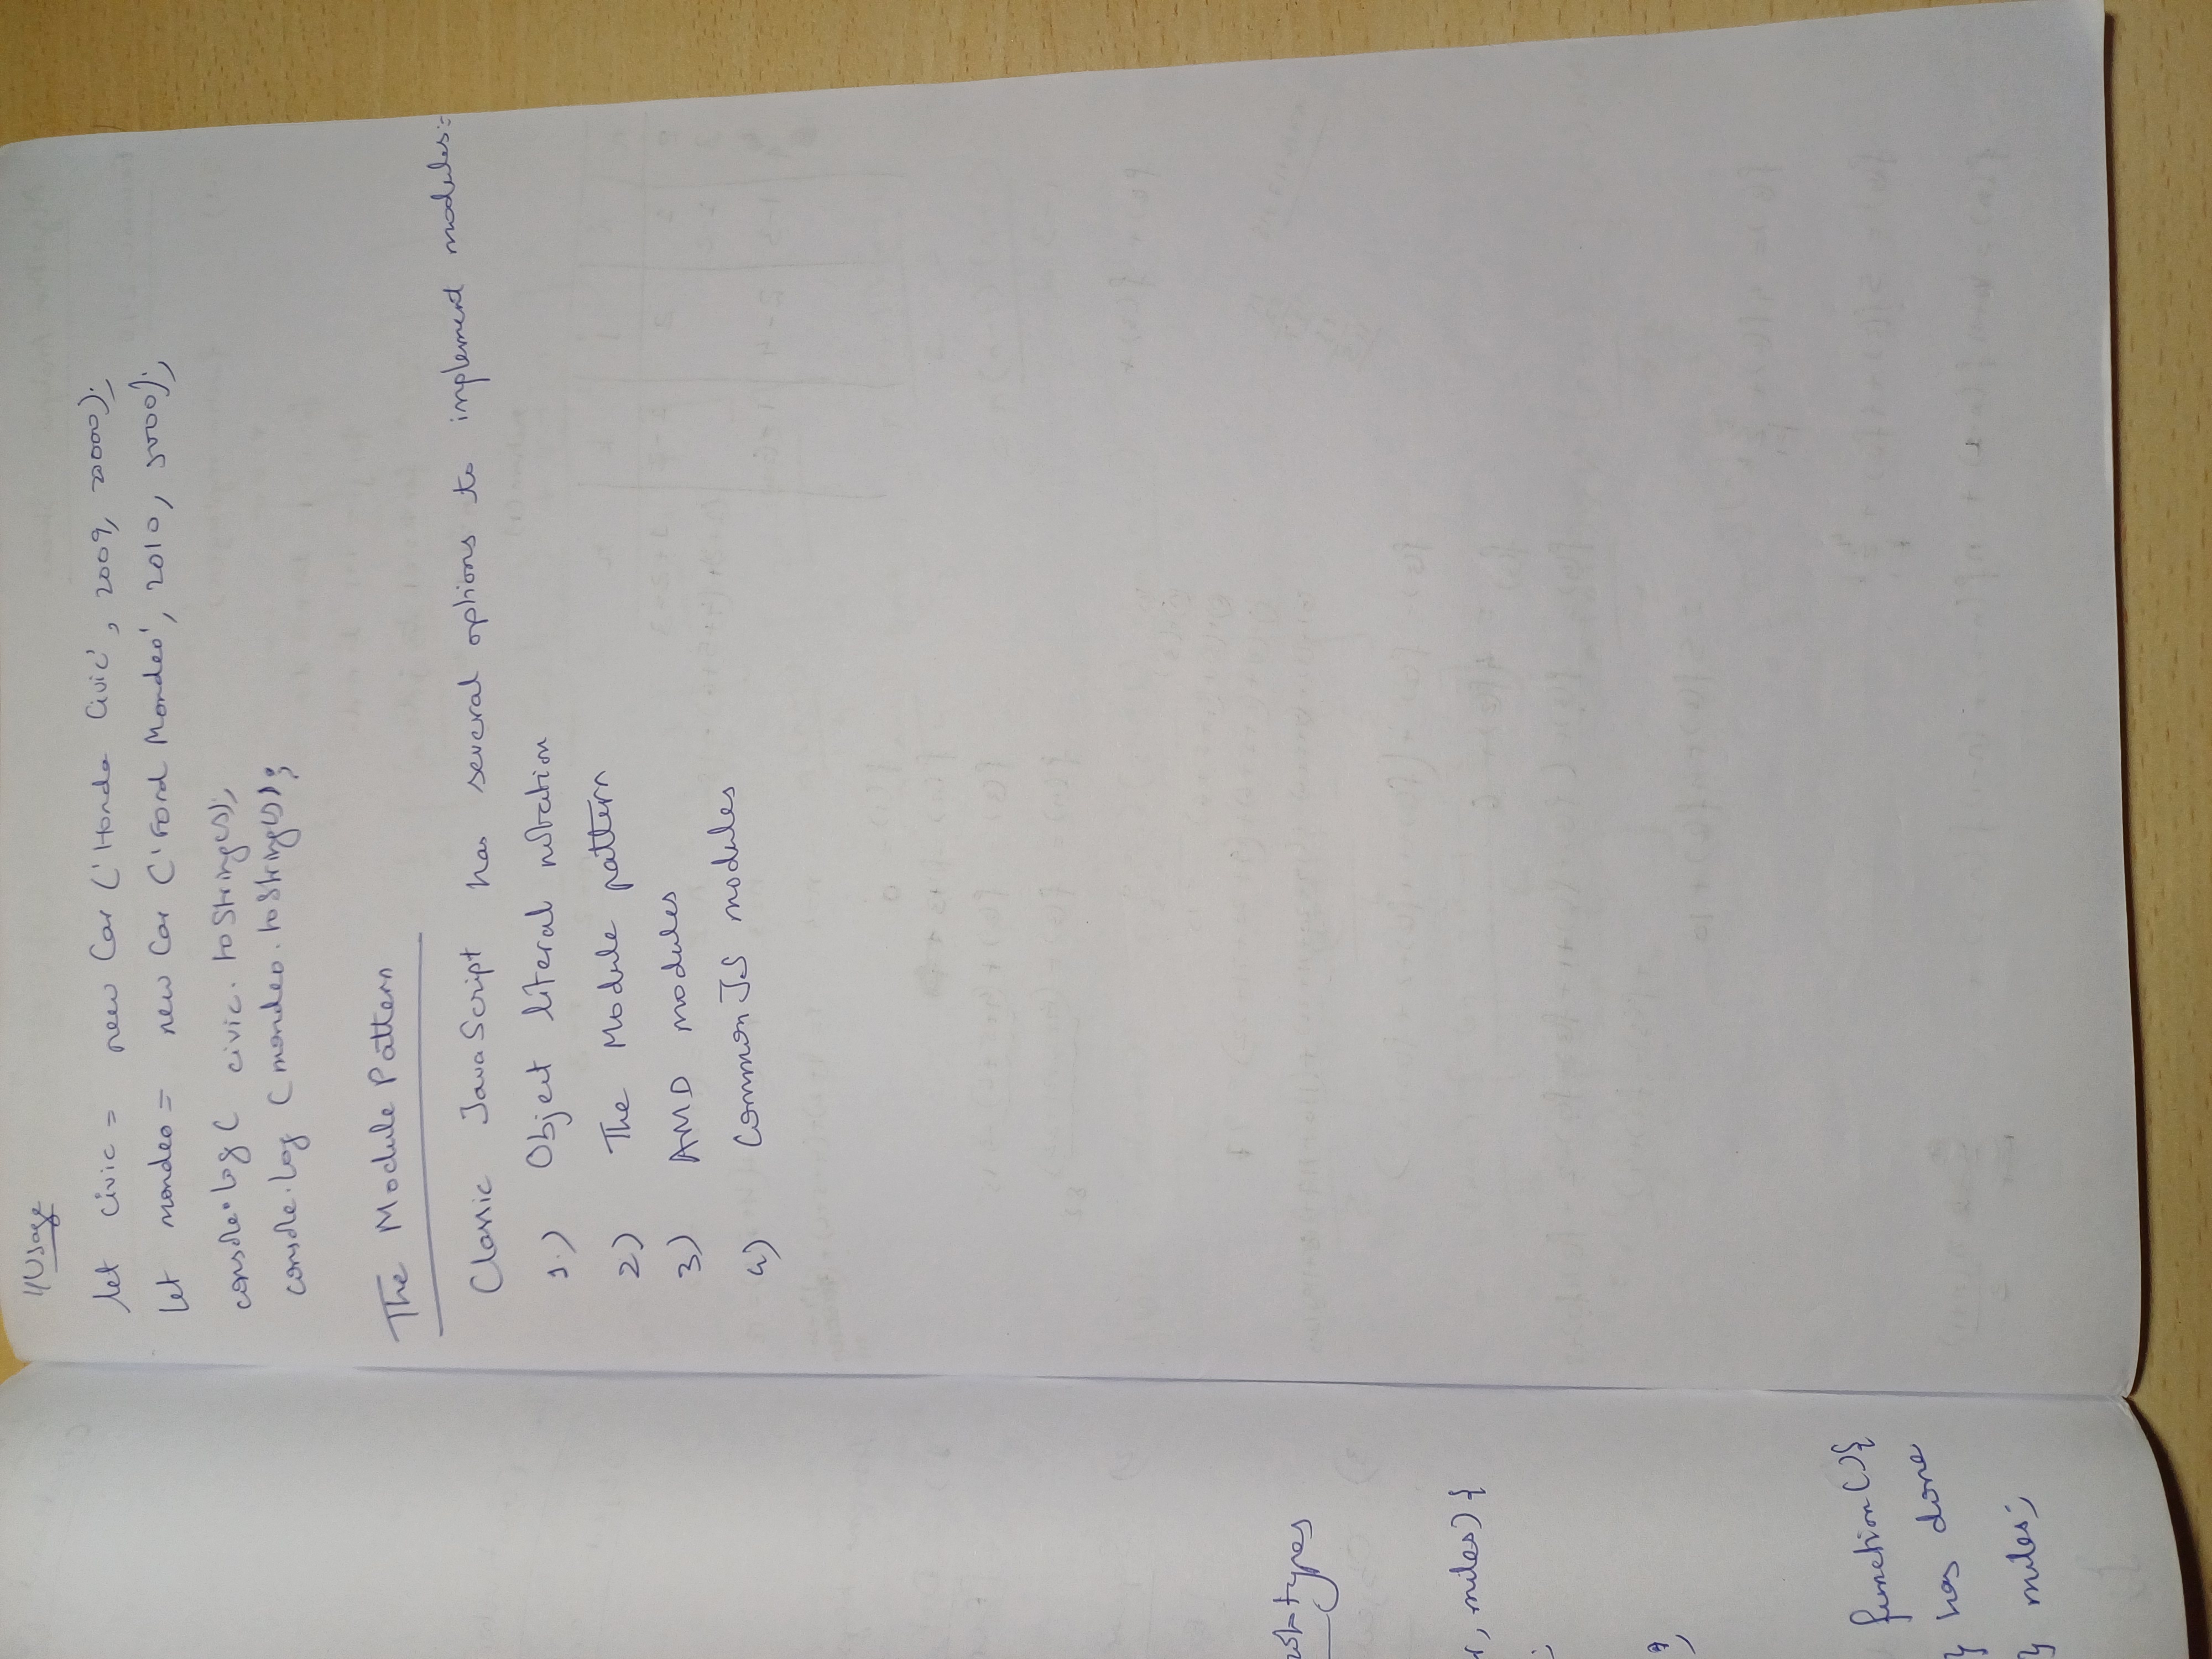 //Usage
let civic = new Car ('Honda Civic', 2009, 20000);
let mondeo = new Car ('Ford Mondeo', 2010, 5000);
console.log( civic.toString());
console.log (mondeo.toString());
The Module Pattern
Classic JavaScript has several options to implement modules:-
1.) Object literal notation
2.) The Module pattern
3) AMD modules
4) CommonJS modules
types
, miles) {
function() {
has done
miles;